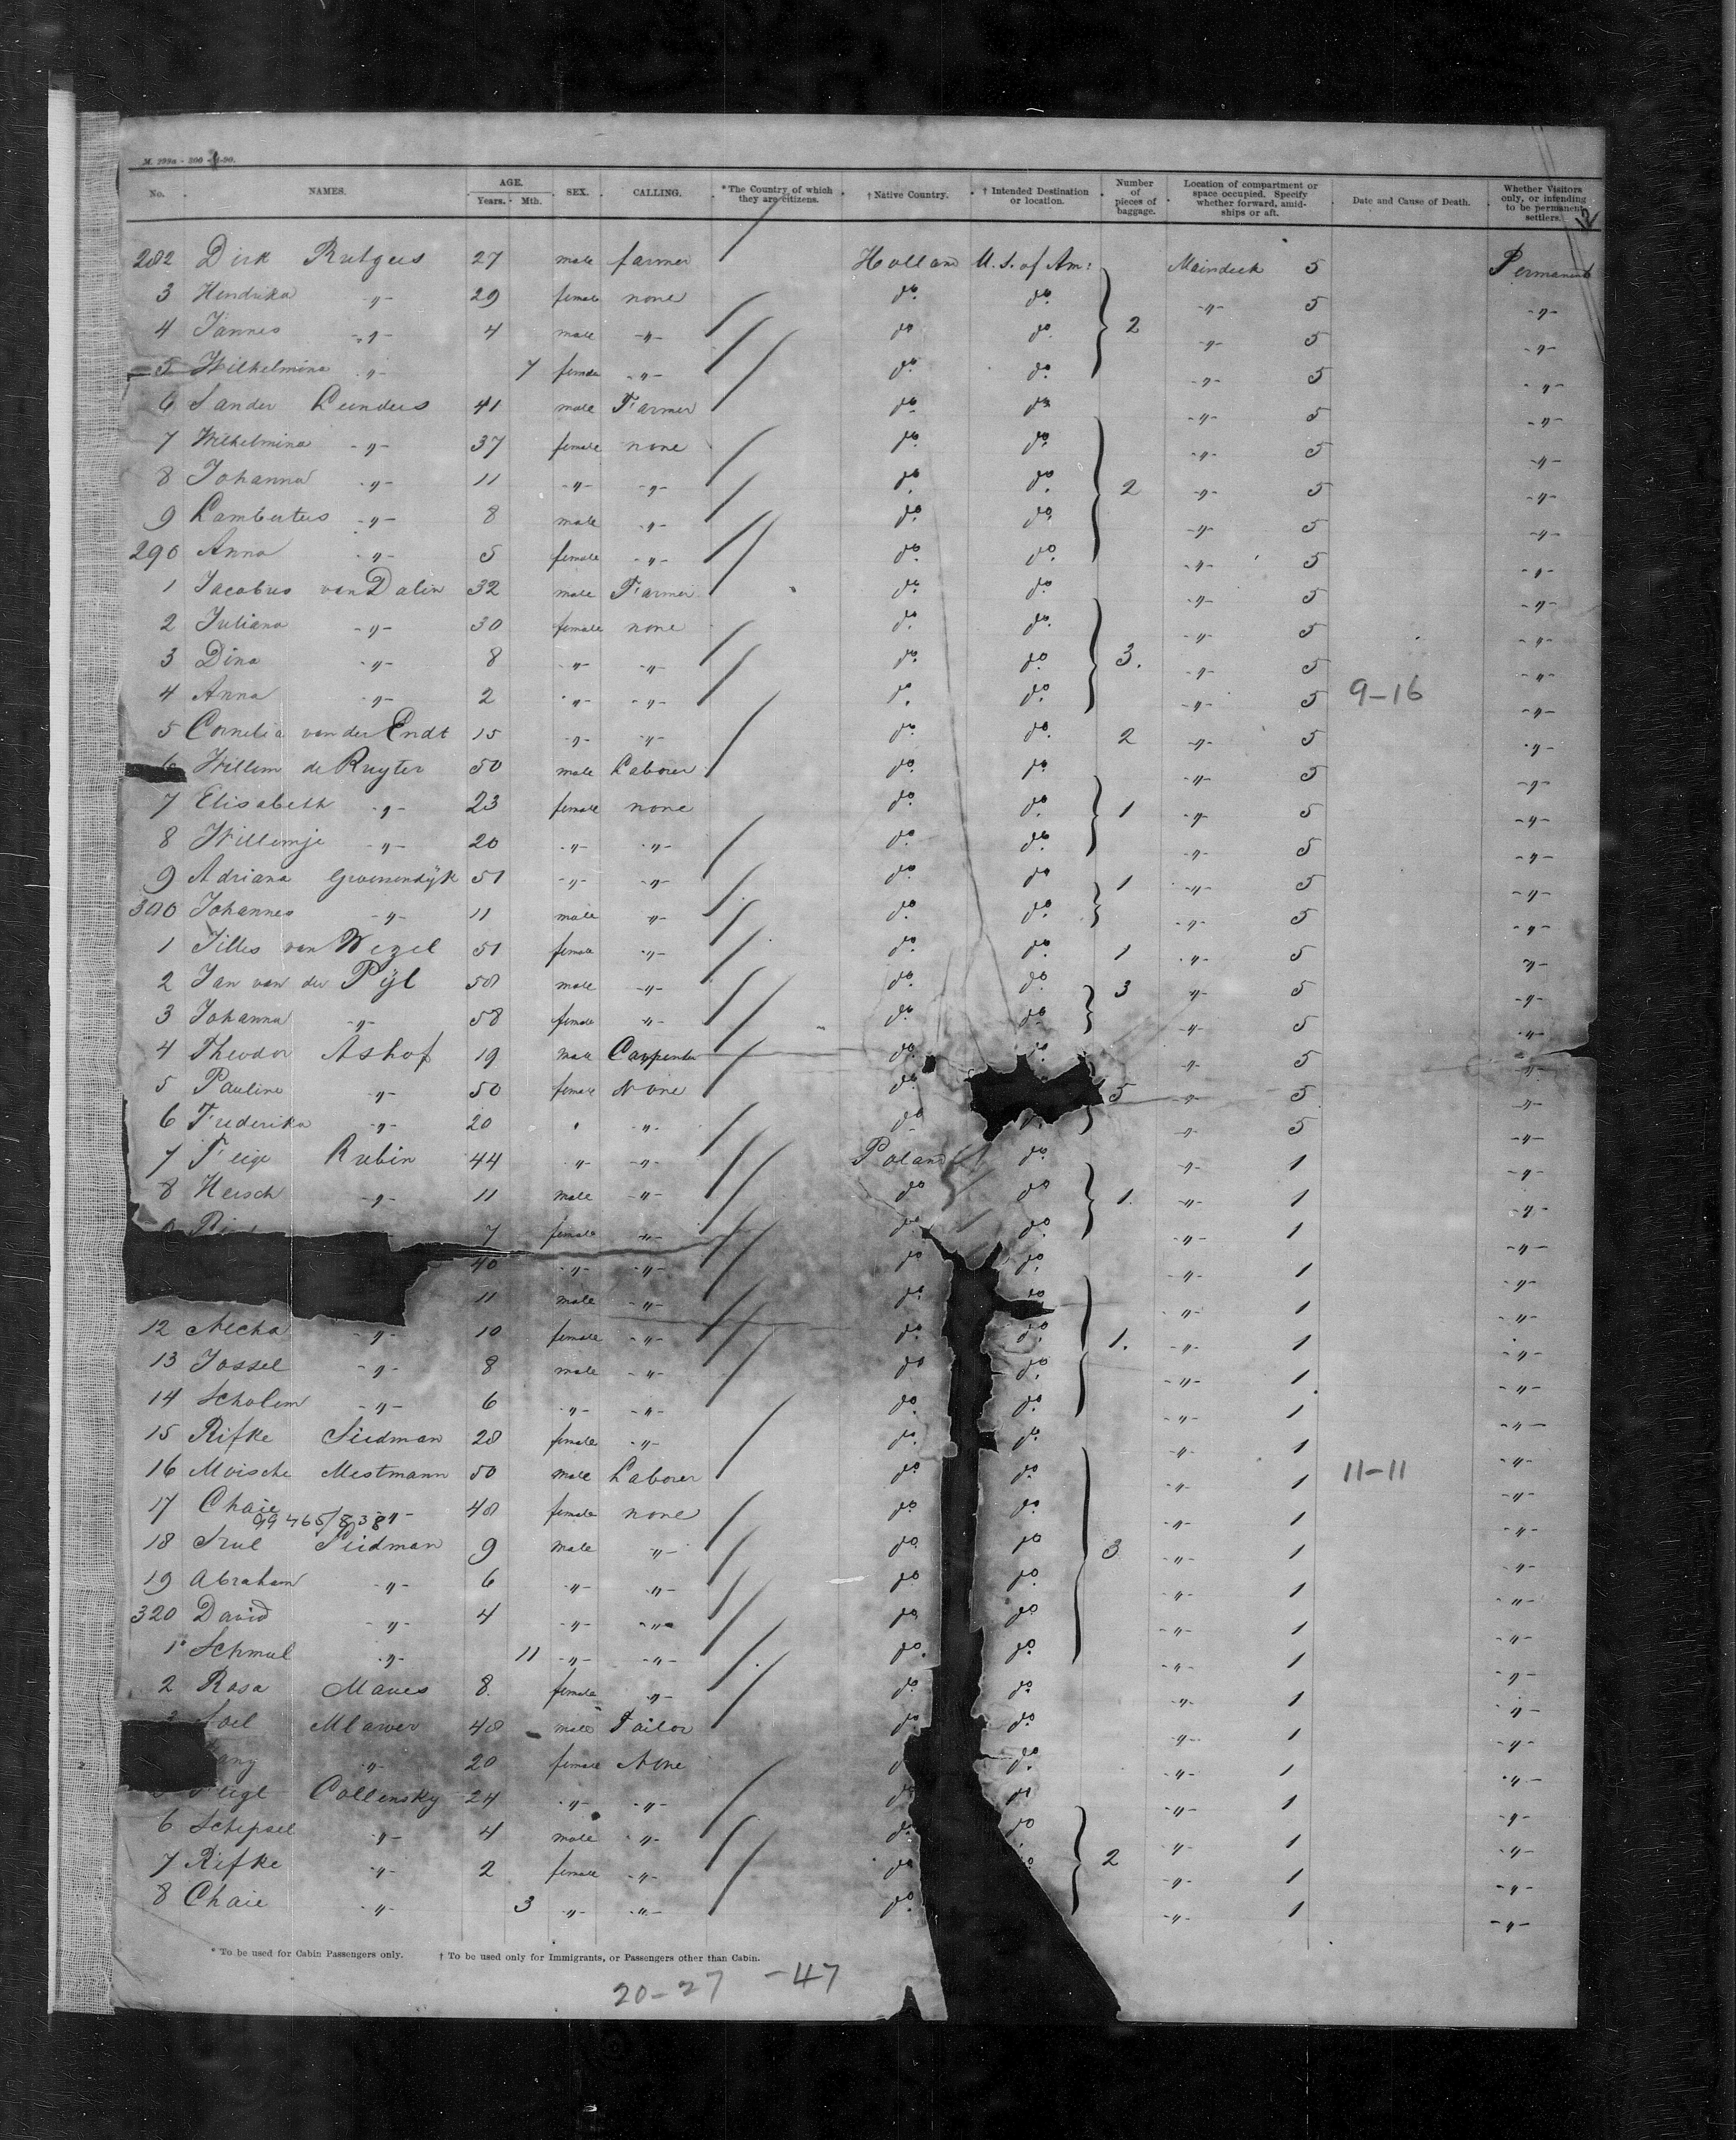 M. 299a - 300 - -90.
No. NAMES. AGE. Years. Mth. SEX. CALLING. * The Country of which they are citizens. † Native Country. † Intended Destination or location. Number of pieces of baggage. Location of compartment or space occupied. Specify whether forward, amidships or aft. Date and Cause of Death. Whether Visitors only, or intending to be permanent settlers.
12
282 Dirk Rutgers 27 male farmer Holland U.S. of Am: Maindeck 5 Permanent
3 Hendrika -"- 29 female none do. do. -"- 5 -"-
4 Jannes -"- 4 male -"- do. do. 2 -"- 5 -"-
5 Wilhelmina -"- 7 female -"- do. do. -"- 5 -"-
6 Sander Leenders 41 male Farmer do. do. -"- 5 -"-
7 Wilhelmina -"- 37 female none do. do. -"- 5 -"-
8 Johanna -"- 11 -"- -"- do. do. 2 -"- 5 -"-
9 Lambertus -"- 8 male -"- do. do. -"- 5 -"-
290 Anna -"- 5 female -"- do. do. -"- 5 -"-
1 Jacobus van Dalen 32 male Farmer do. do. -"- 5 -"-
2 Juliana -"- 30 female none do. do. -"- 5 -"-
3 Dina -"- 8 -"- -"- do. do. 3. -"- 5 -"-
4 Anna -"- 2 -"- -"- do. do. -"- 5 9-16 -"-
5 Cornelia van der Endt 15 -"- -"- do. do. 2 -"- 5 -"-
6 Willem de Ruyter 50 male Laborer do. do. -"- 5 -"-
7 Elisabeth -"- 23 female none do. do. 1 -"- 5 -"-
8 Willemje -"- 20 -"- -"- do. do. -"- 5 -"-
9 Adriana Groenendijk 51 -"- -"- do. do. 1 -"- 5 -"-
300 Johannes -"- 11 male -"- do. do. -"- 5 -"-
1 Jilles van Wezel 51 female -"- do. do. 1 -"- 5 -"-
2 Jan van der Pijl 58 male -"- do. do. 3 -"- 5 -"-
3 Johanna -"- 58 female -"- do. do. -"- 5 -"-
4 Theodor Ashof 19 male Carpenter do. do. -"- 5 -"-
5 Pauline -"- 50 female None do. 5 -"- 5 -"-
6 Frederika -"- 20 " -"- do. -"- 5 -"-
7 Feige Rubin 44 -"- -"- Poland do. -"- 1 -"-
8 Hersch -"- 11 male -"- do. do. 1. -"- 1 -"-
7 female -"- do. do. -"- 1 -"-
40 -"- -"- do. do. -"- 1 -"-
11 male -"- do. do. -"- 1 -"-
12 Necha -"- 10 female -"- do. do. 1. -"- 1 -"-
13 Jossel -"- 8 male -"- do. do. -"- 1 -"-
14 Scholem -"- 6 -"- -"- do. do. -"- 1 -"-
15 Rifke Siedman 28 female -"- do. do. -"- 1 -"-
16 Moische Mestmann 50 male Laborer do. do. -"- 1 11-11 -"-
17 Chaie -"- 48 female none do. do. -"- 1 -"-
99465/838
18 Srul Siedman 9 male -"- do. do. 3 -"- 1 -"-
19 Abraham -"- 6 -"- -"- do. do. -"- 1 -"-
320 David -"- 4 -"- -"- do. do. -"- 1 -"-
1 Schmul -"- 11 -"- -"- do. do. -"- 1 -"-
2 Rosa Manes 8 female -"- do. do. -"- 1 -"-
Mlawer 48 male Tailor do. do. -"- 1 -"-
-"- 20 female None do. -"- 1 -"-
Collensky 24 -"- -"- do. do. -"- 1 -"-
6 Schepsel -"- 4 male -"- do. do. -"- 1 -"-
7 Rifke -"- 2 female -"- do. 2 -"- 1 -"-
8 Chaie -"- 3 -"- -"- do. -"- 1 -"-
* To be used for Cabin Passengers only. † To be used only for Immigrants, or Passengers other than Cabin.
20-27 -47